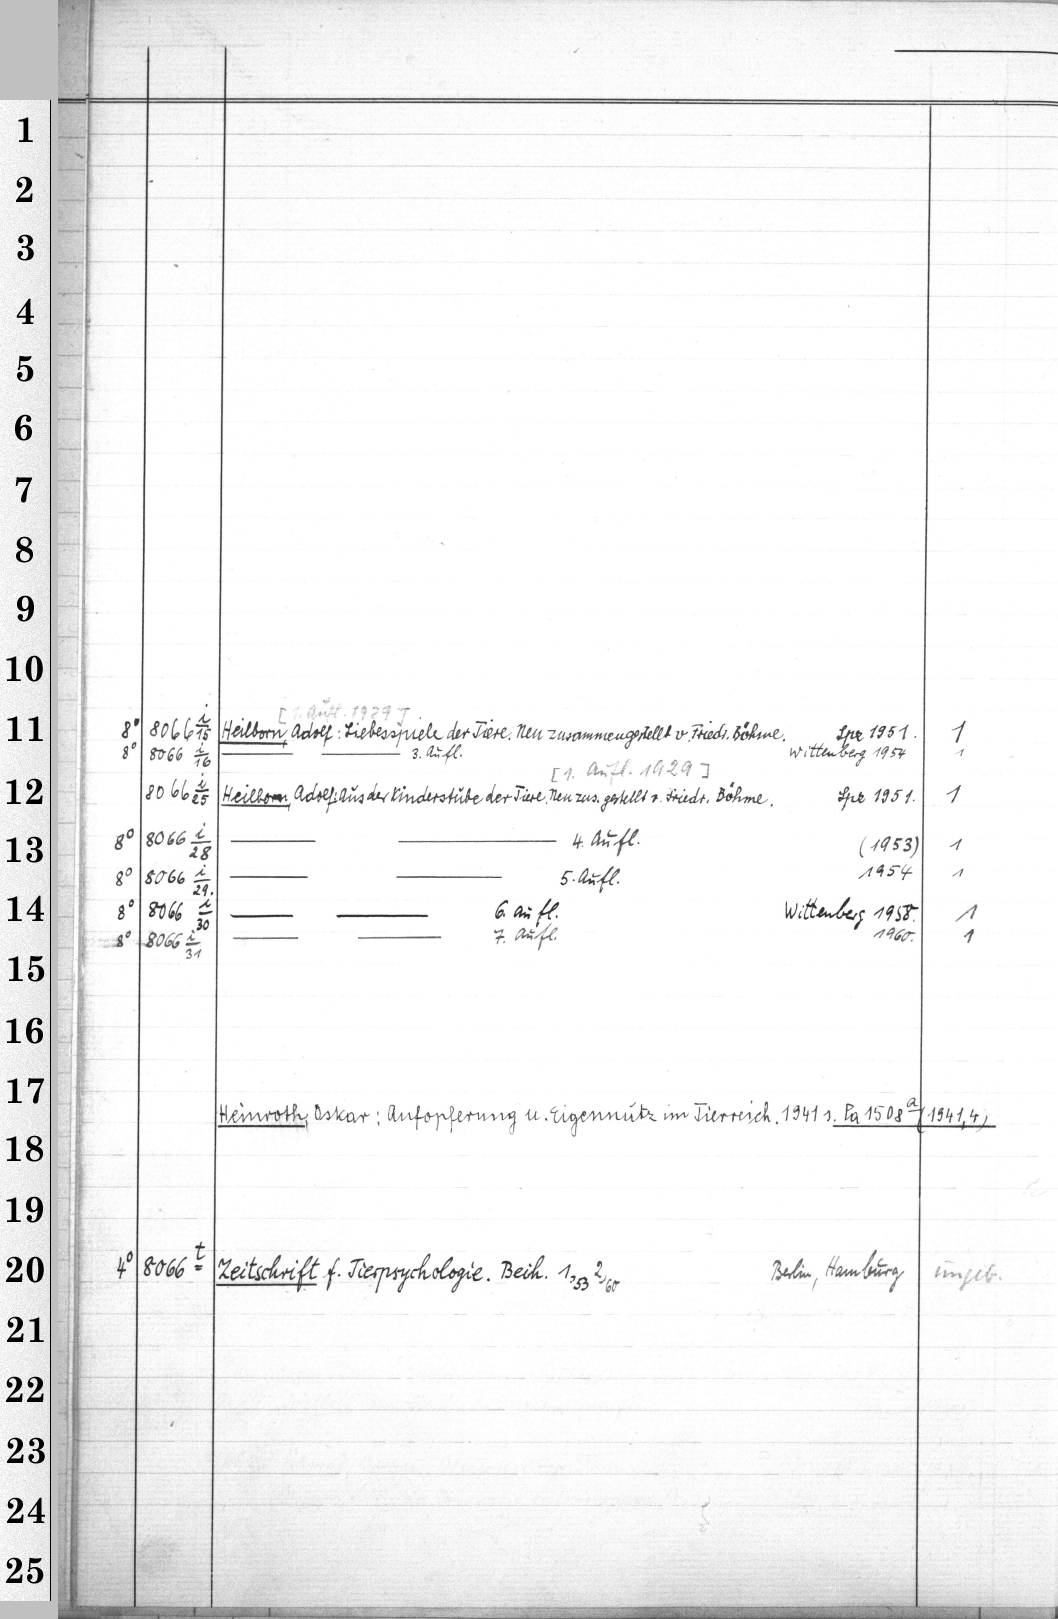 1
2
3
4
5
6
7
8
9
10
[1. Aufl. 1929]
11 8° 8066 i/15 Heilborn, Adolf: Liebesspiele der Tiere. Neu zusammengestellt v. Friedr. Böhme. Lpz 1951. 1
8° 8066 i/16 — — 3. Aufl. Wittenberg 1954 1
[1. Aufl. 1929]
12 8066 i/25 Heilborn, Adolf: Aus der Kinderstube der Tiere. Neu zus. gestellt v. Friedr. Böhme. Lpz 1951. 1
13 8° 8066 i/28 — — 4. Aufl. (1953) 1
8° 8066 i/29. — — 5. Aufl. 1954 1
14 8° 8066 i/30 — — 6. Aufl. Wittenberg 1958. 1
8° 8066 i/31 — — 7. Aufl. 1960. 1
15
16
17
Heinroth, Oskar: Aufopferung u. Eigennutz im Tierreich. 1941 s. Pa 1508 a (1941,4)
18
19
20 4° 8066 t Zeitschrift f. Tierpsychologie. Beih. 1,53 2,60 Berlin, Hamburg ungeb.
21
22
23
24
25